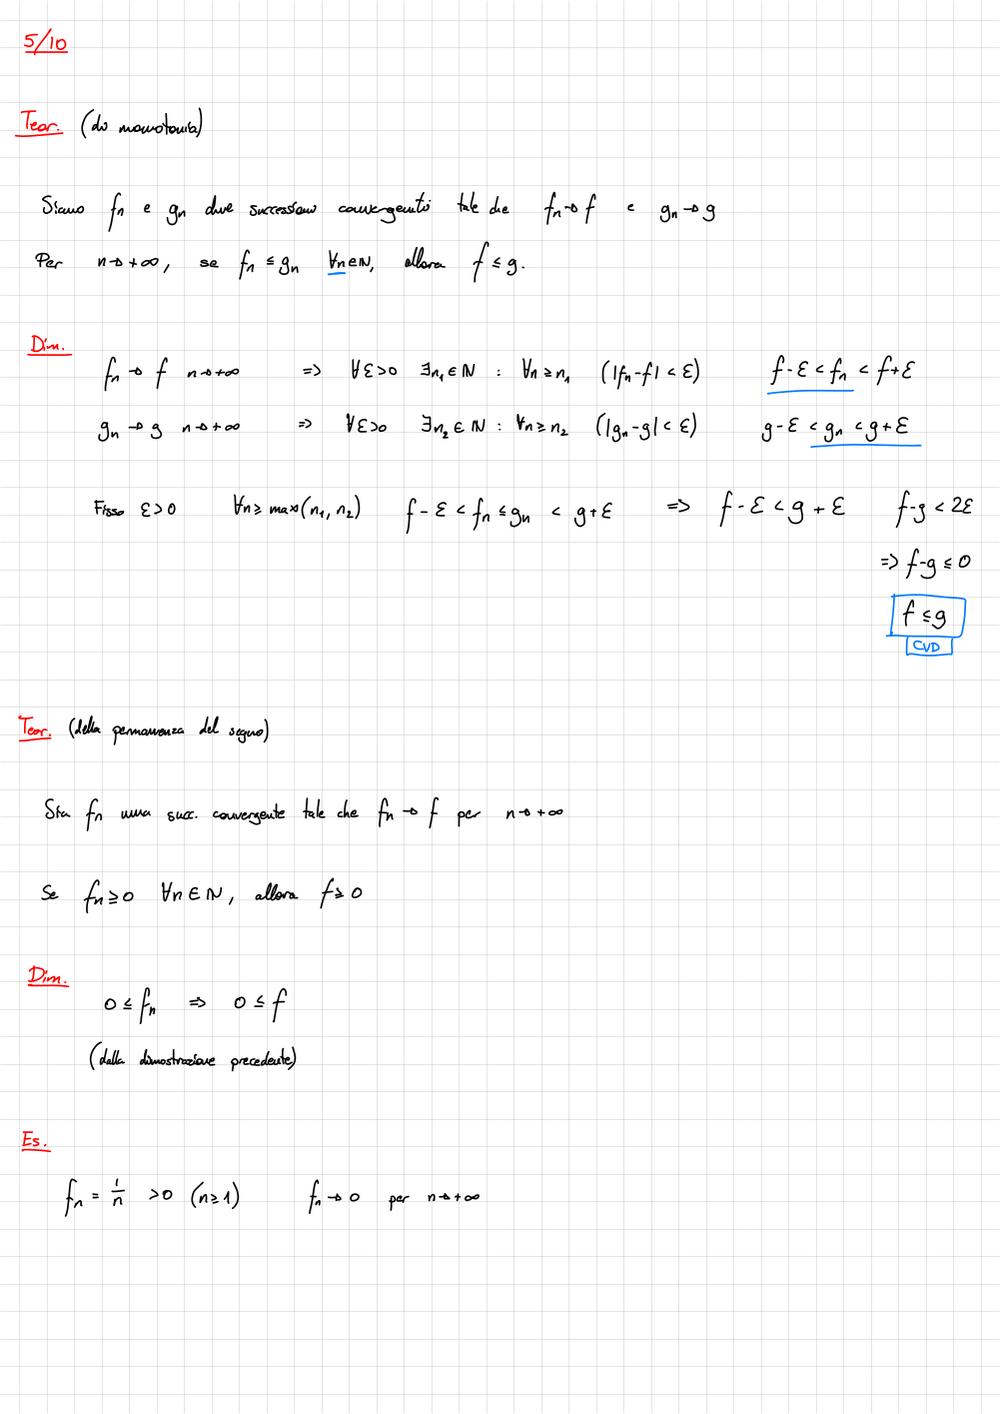 5/10
Teor. (di monotonia)
Siano fn e gn due successioni convergenti tale che fn→f e gn→g
Per n→+∞, se fn ≤ gn ∀n∈ℕ, allora f ≤ g.
Dim.
fn → f n→+∞ => ∀ε>0 ∃n₁∈ℕ : ∀n≥n₁ (|fn-f|<ε) f-ε < fn < f+ε
gn → g n→+∞ => ∀ε>0 ∃n₂∈ℕ : ∀n≥n₂ (|gn-g|<ε) g-ε < gn < g+ε
Fisso ε>0 ∀n≥max(n₁,n₂) f-ε < fn ≤ gn < g+ε => f-ε < g+ε f-g < 2ε
=> f-g ≤ 0
f ≤ g
CVD
Teor. (della permanenza del segno)
Sia fn una succ. convergente tale che fn → f per n→+∞
Se fn ≥ 0 ∀n∈ℕ, allora f ≥ 0
Dim.
0 ≤ fn => 0 ≤ f
(dalla dimostrazione precedente)
Es.
fn = 1/n >0 (n≥1) fn → 0 per n→+∞